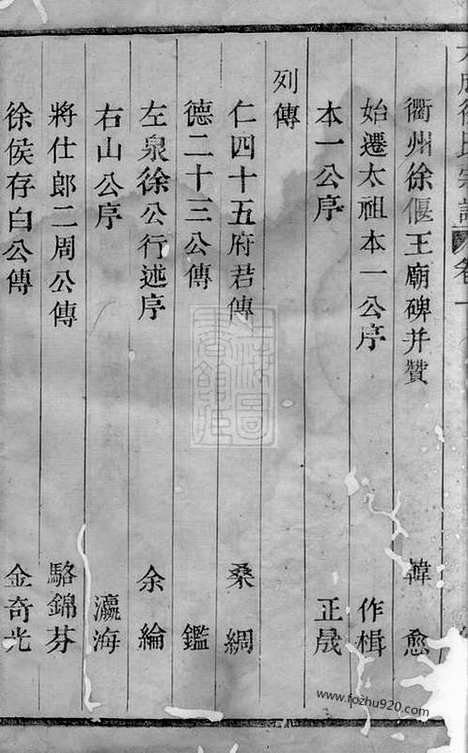 衢州徐偃王廟碑并贊 韓愈
始遷太祖本一公序 作楫
本一公序 正晟
列傳
仁四十五府君傳 桑綢
德二十三公傳 鑑
左泉徐公行述序 余綸
右山公序 瀛海
將仕郎二周公傳 駱錦芬
徐侯存白公傳 金奇光
www.fozhu920.com